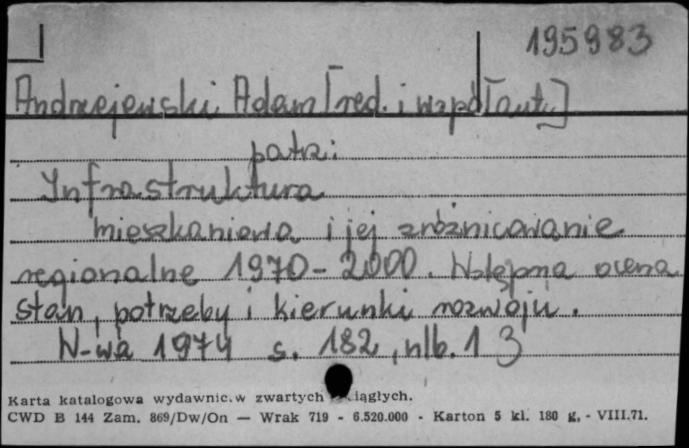 195983
Andrzejewski Adam [red. i współaut.]
patrz:
Infrastruktura
mieszkaniowa i jej zróżnicowanie
regionalne 1970-2000. Wstępna ocena
stan, potrzeby i kierunki rozwoju.
W-wa 1974 s. 182, nlb. 1 3
Karta katalogowa wydawnic. w zwartych iągłych.
CWD B 144 Zam. 869/Dw/On — Wrak 719 - 6.520.000 - Karton 5 kl. 180 g. - VIII.71.